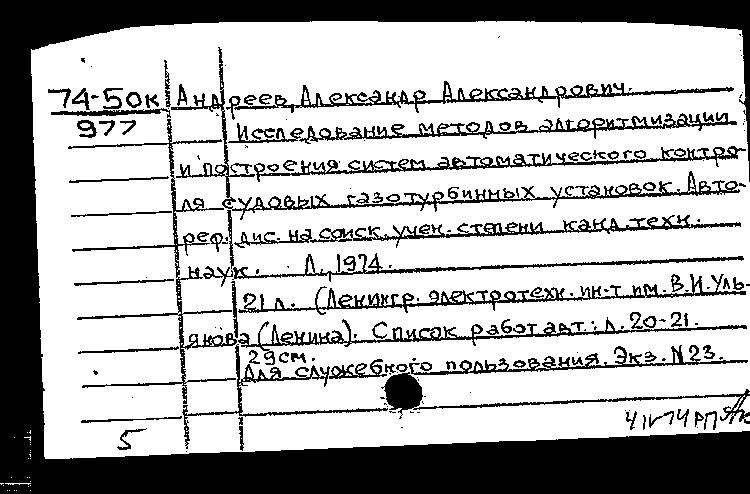 74-50к Андреев, Александр Александрович.
977 Исследование методов алгоритмизации
и построения систем автоматического контро-
ля судовых газотурбинных установок. Авто-
реф. дис. на соиск. учен. степени канд. техн.
наук. Л., 1974.
21 л. (Ленингр. электротехн. ин-т им. В.И. Уль-
янова (Ленина). Список работ авт.: л. 20-21.
29см.
Для служебного пользования. Экз. N23.
4 IV 74 РП
5